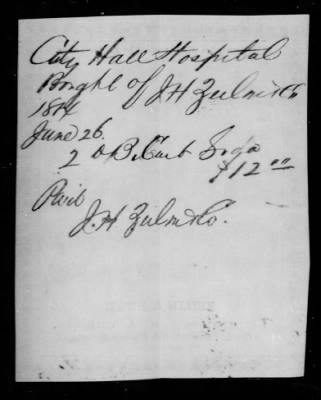 City Hall Hospital
Bought of J H Zeilin & Co
1864
June 26.
2 BiCarb Soda
$12 00
Paid
J. H Zeilin & Co.